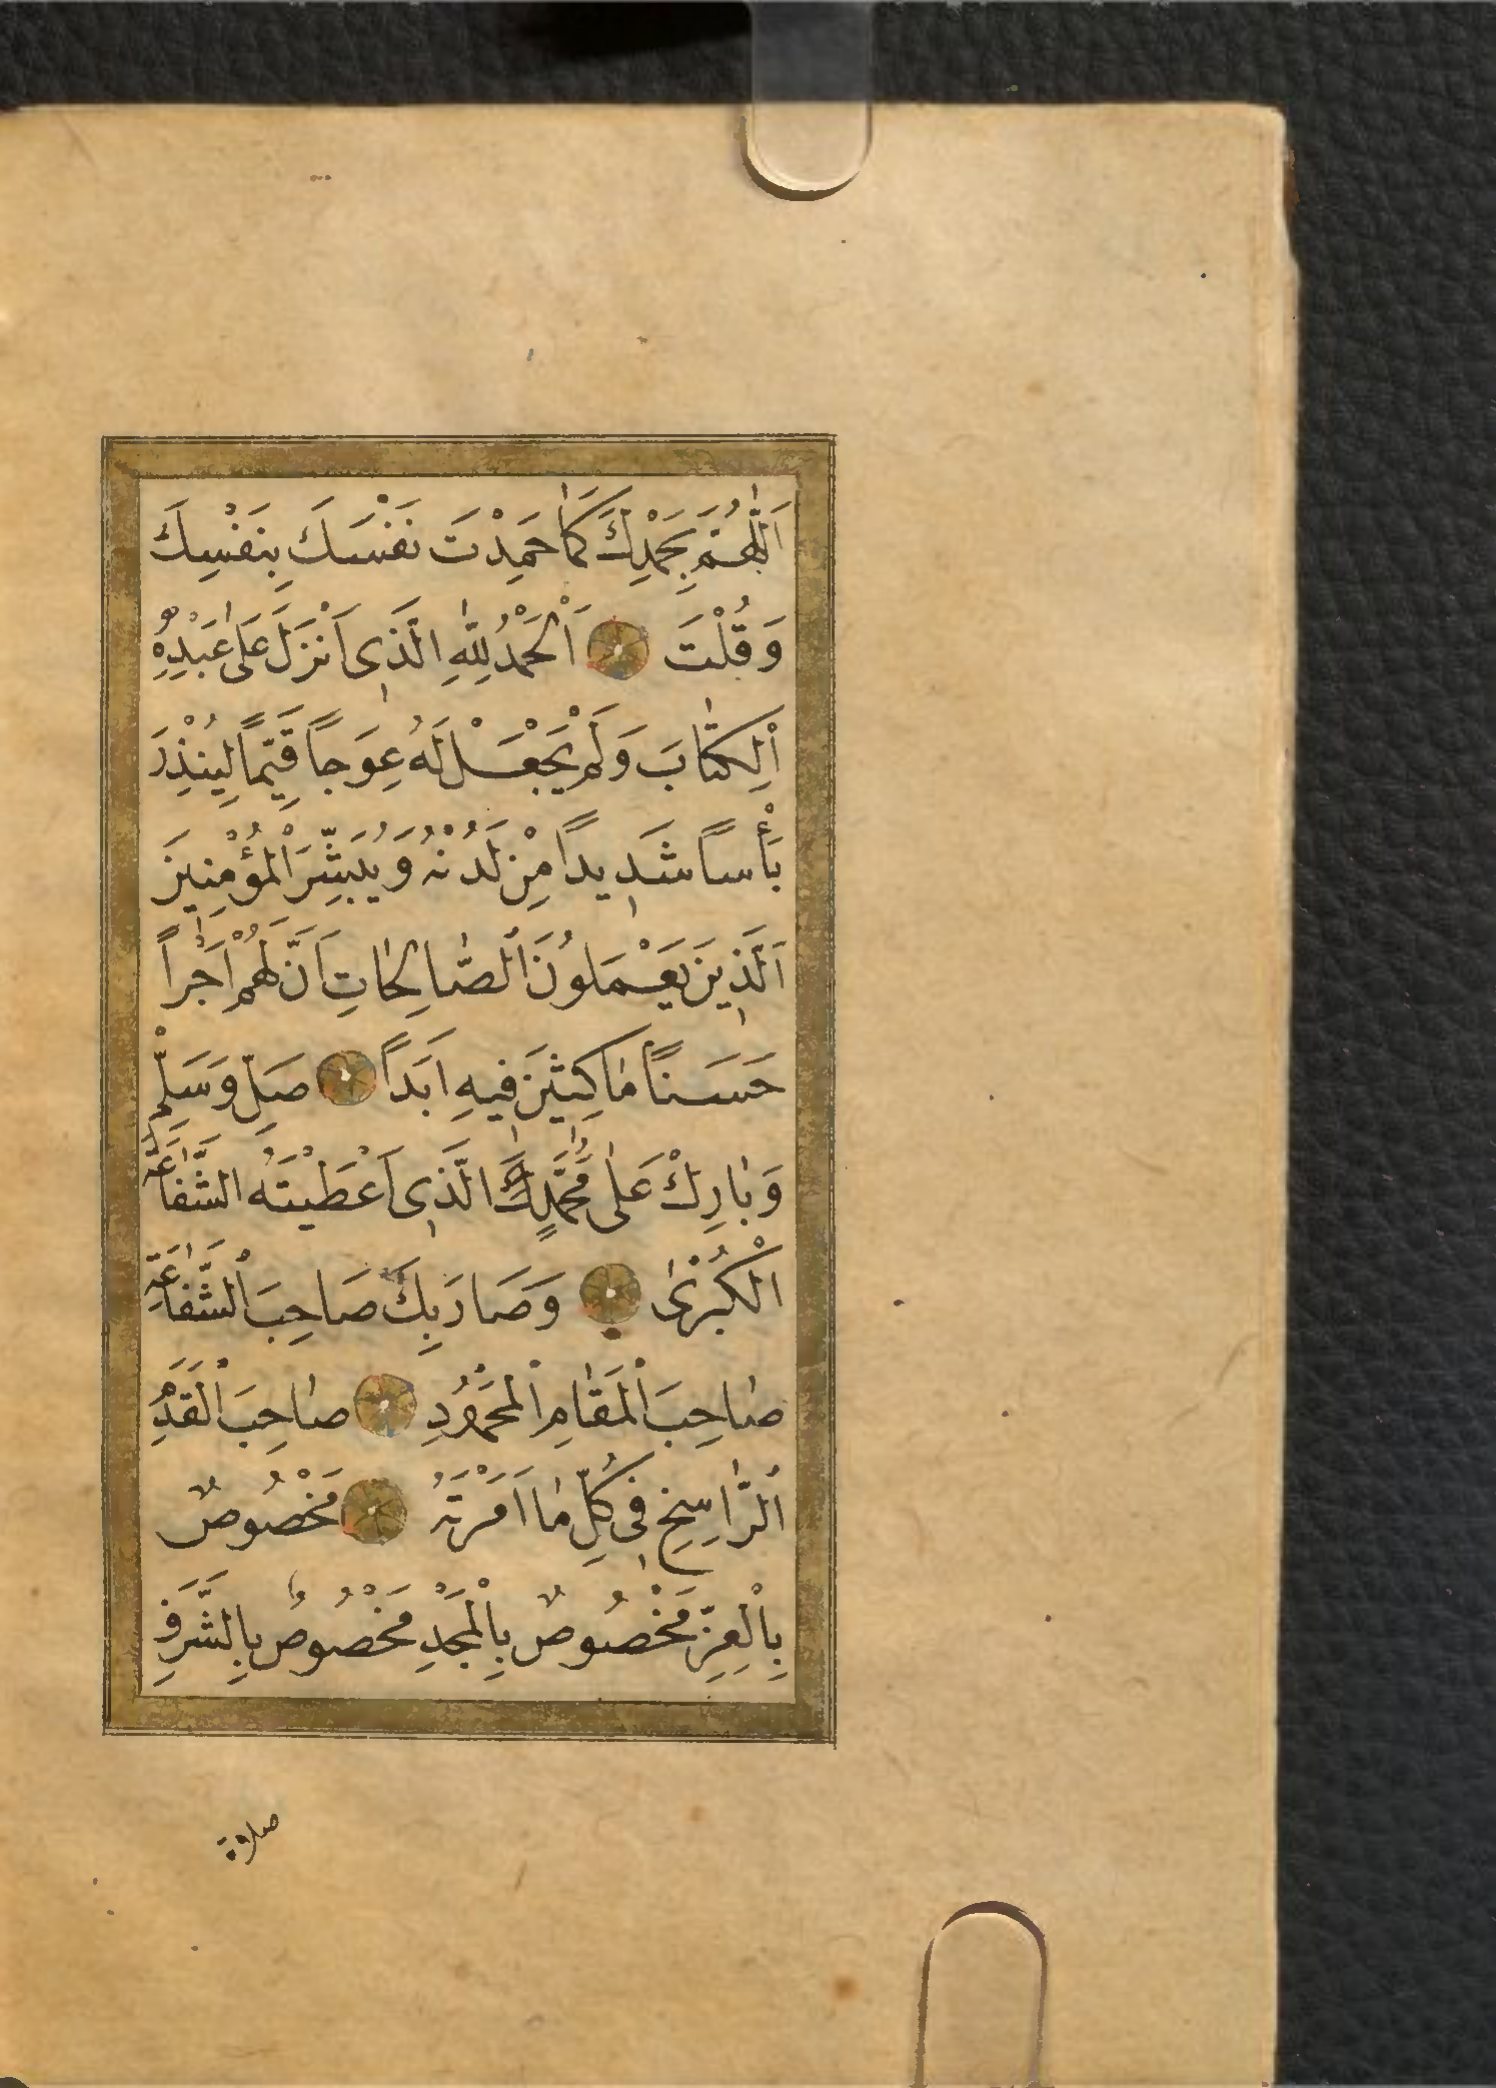 اَللّٰهُمَّ بِحَمْدِكَ كَمَا حَمِدْتَ نَفْسَكَ بِنَفْسِكَ
وَقُلْتَ اَلْحَمْدُ لِلّٰهِ الَّذِى اَنْزَلَ عَلٰى عَبْدِهِ
اَلْكِتٰابَ وَلَمْ يَجْعَلْ لَهُ عِوَجاً قَيِّماً لِيُنْذِرَ
بَأْساً شَدِيداً مِنْ لَدُنْهُ وَيُبَشِّرَ الْمُؤْمِنِينَ
اَلَّذِينَ يَعْمَلُونَ الصّٰالِحٰاتِ اَنَّ لَهُمْ اَجْراً
حَسَنًا مٰاكِثِينَ فِيهِ اَبَداً صَلِّ وَسَلِّمْ
وَبٰارِكْ عَلٰى مُحَمَّدٍ الَّذِى اَعْطَيْتَهُ الشَّفٰاعَةَ
الْكُبْرٰى وَصَارَ بِكَ صَاحِبَ الشَّفٰاعَةِ
صٰاحِبَ الْمَقٰامِ الْمَحْمُودِ صٰاحِبَ الْقَدَمِ
الرّٰاسِخِ فِى كُلِّ مٰا اَمَرْتَهُ مَخْصُوصٌ
بِالْعِزِّ مَخْصُوصٌ بِالْمَجْدِ مَخْصُوصٌ بِالشَّرَفِ
صلاة